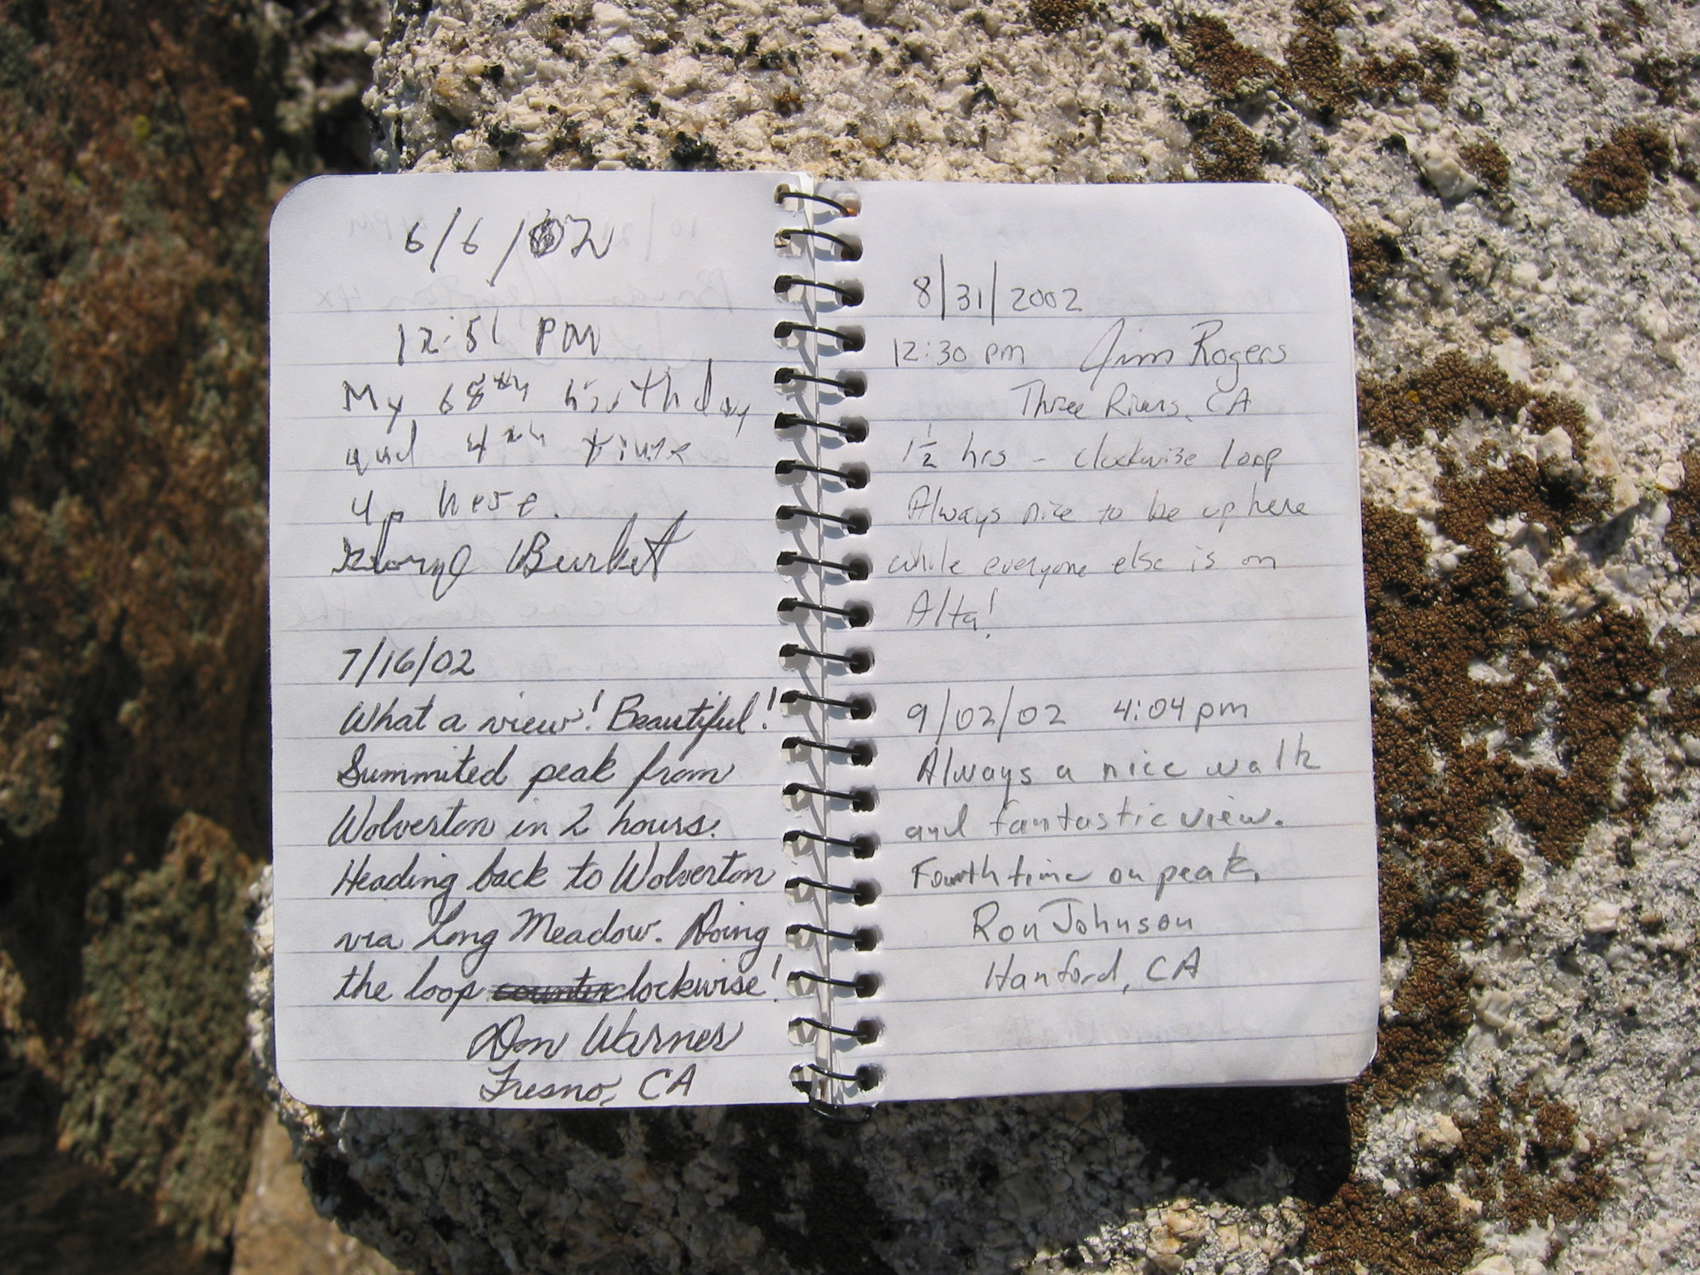 6/6/02
12:51 PM
My 68th birthday
and 4th time
up here.
Burket
7/16/02
What a view! Beautiful!
Summited peak from
Wolverton in 2 hours.
Heading back to Wolverton
via Long Meadow. Doing
the loop counterclockwise!
Don Warner
Fresno, CA
8/31/2002
12:30 pm Jim Rogers
Three Rivers, CA
1½ hrs - clockwise loop
Always nice to be up here
while everyone else is on
Alta!
9/02/02 4:04 pm
Always a nice walk
and fantastic view.
Fourth time on peak.
Ron Johnson
Hanford, CA